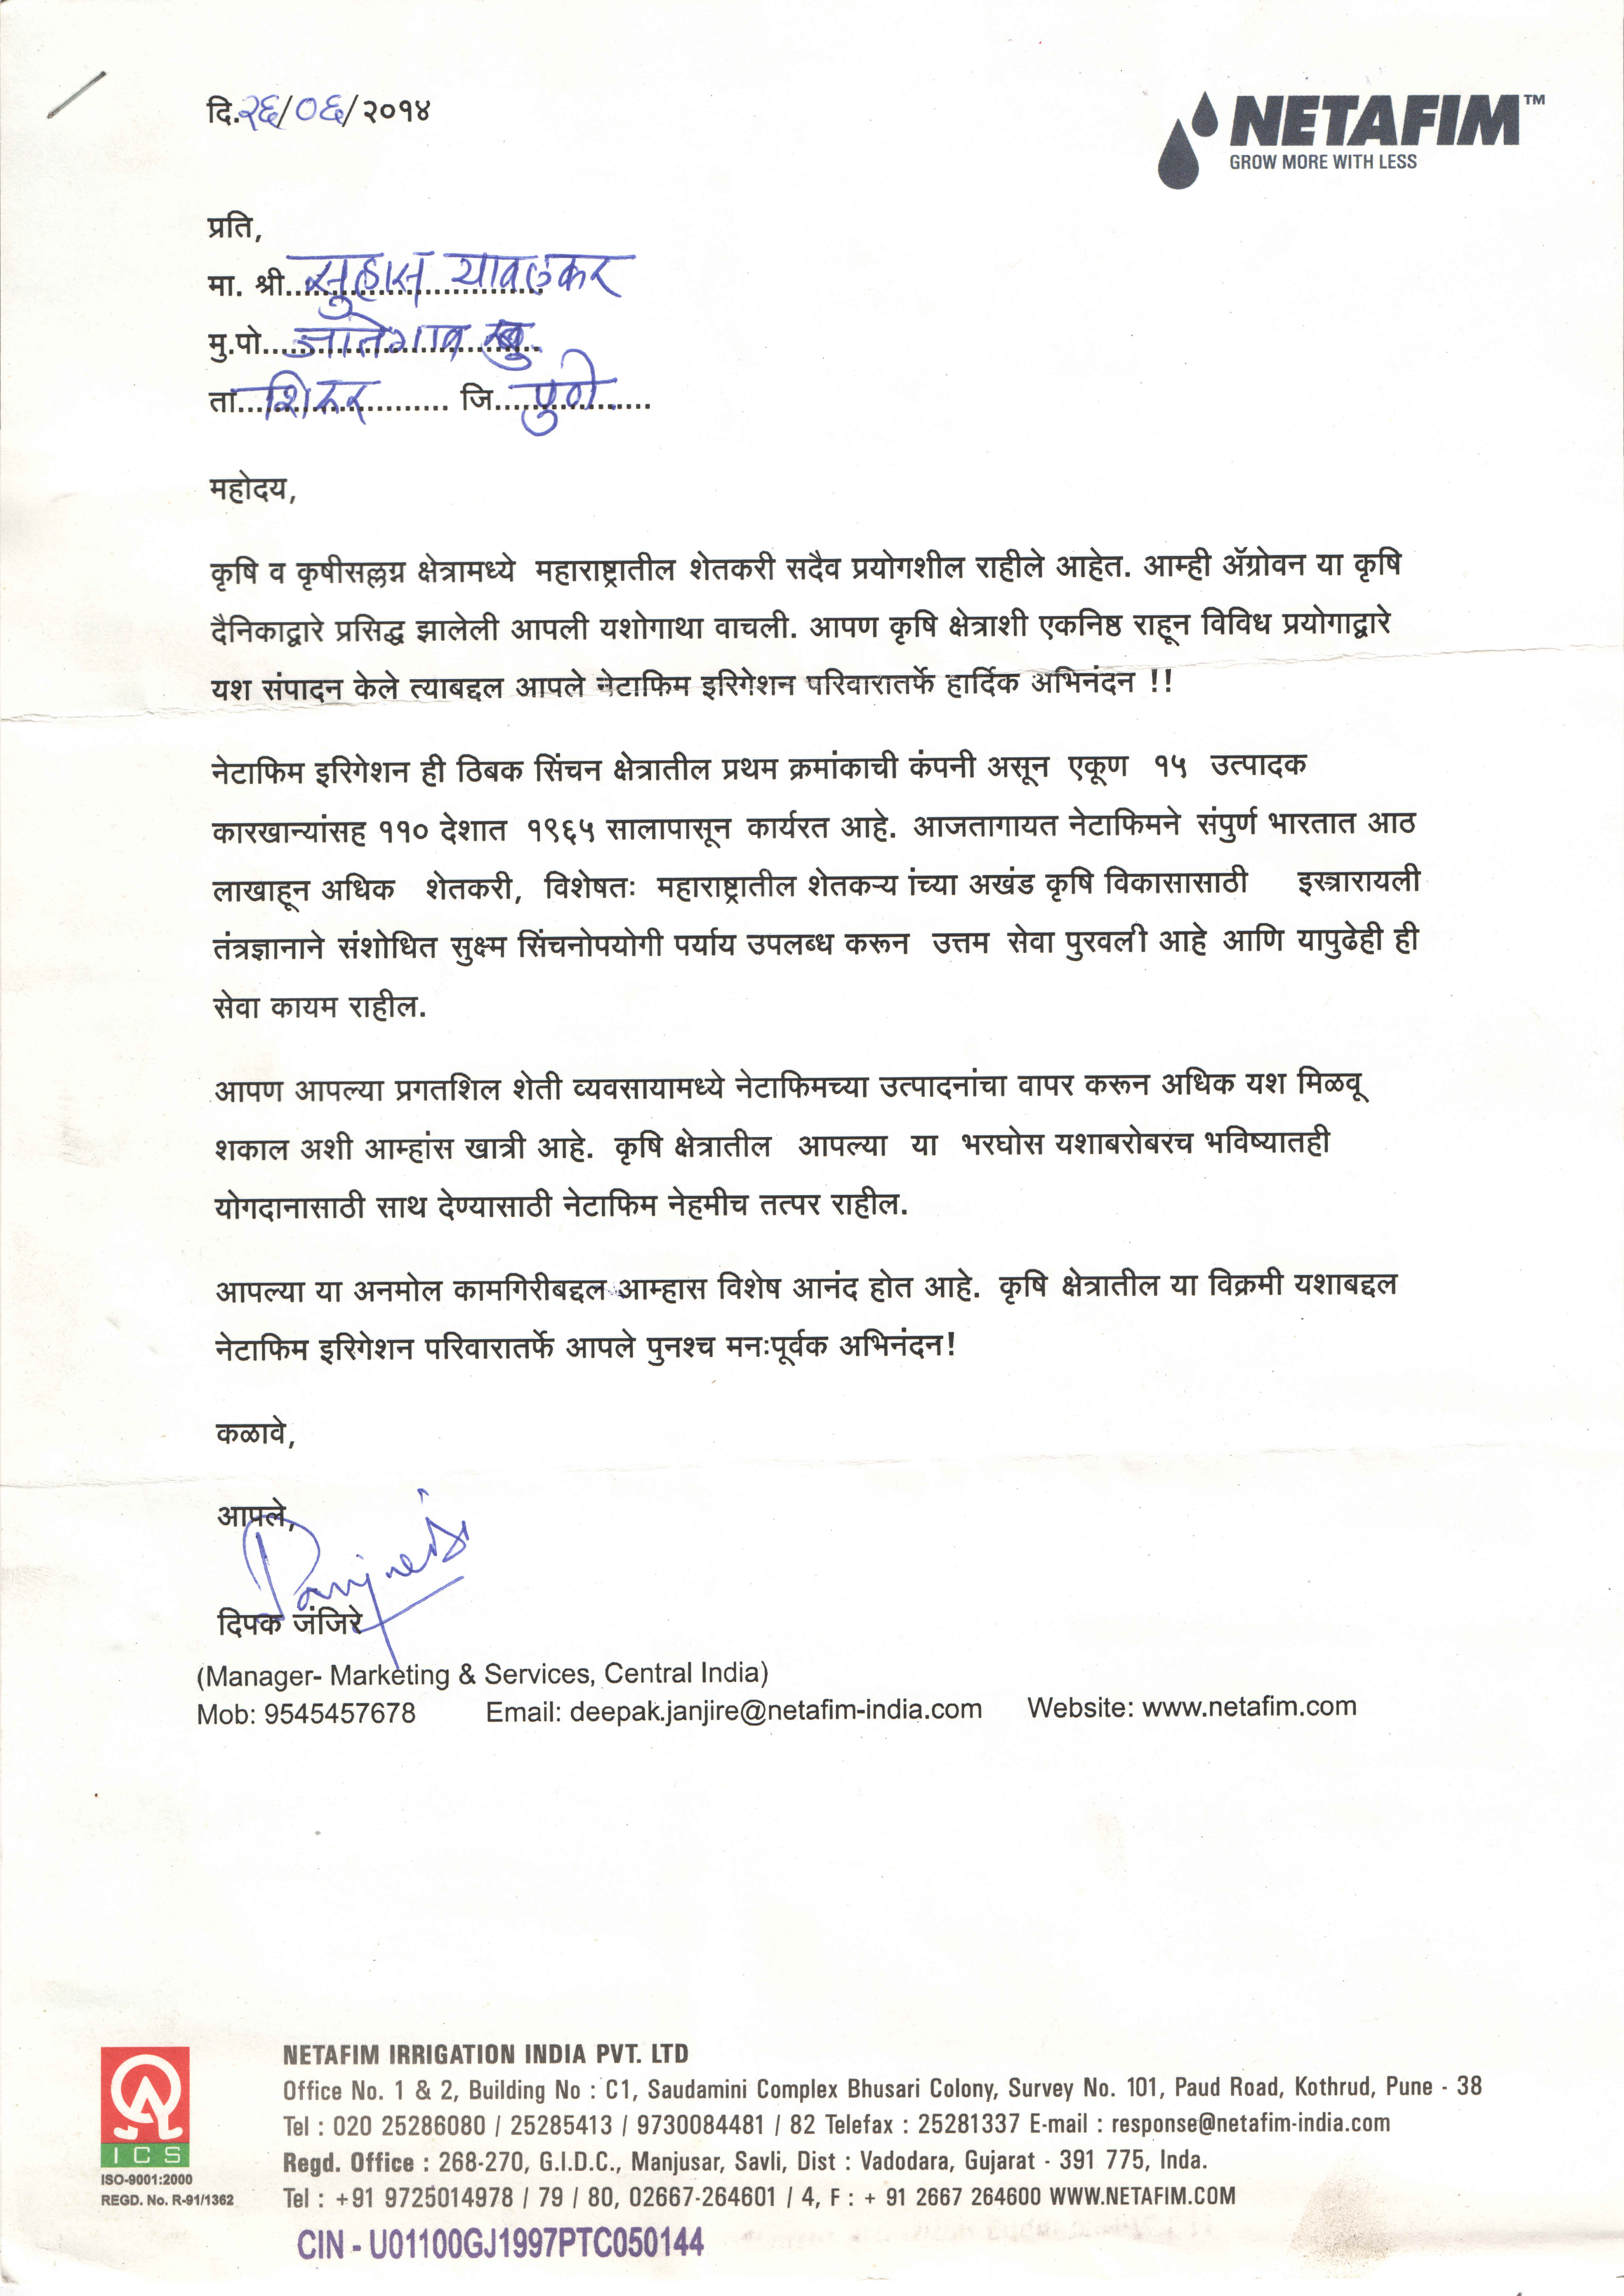 दि.२६/०६/२०१४
NETAFIM™
GROW MORE WITH LESS
प्रति,
मा. श्री. सुहास यावलकर
मु.पो. जातेगाव खु.
ता. शिरूर जि. पुणे.
महोदय,
कृषि व कृषीसल्लग्न क्षेत्रामध्ये महाराष्ट्रातील शेतकरी सदैव प्रयोगशील राहीले आहेत. आम्ही ॲग्रोवन या कृषि
दैनिकाद्वारे प्रसिद्ध झालेली आपली यशोगाथा वाचली. आपण कृषि क्षेत्राशी एकनिष्ठ राहून विविध प्रयोगाद्वारे
यश संपादन केले त्याबद्दल आपले नेटाफिम इरिगेशन परिवारातर्फे हार्दिक अभिनंदन !!
नेटाफिम इरिगेशन ही ठिबक सिंचन क्षेत्रातील प्रथम क्रमांकाची कंपनी असून एकूण १५ उत्पादक
कारखान्यांसह ११० देशात १९६५ सालापासून कार्यरत आहे. आजतागायत नेटाफिमने संपुर्ण भारतात आठ
लाखाहून अधिक शेतकरी, विशेषतः महाराष्ट्रातील शेतकऱ्य ांच्या अखंड कृषि विकासासाठी इस्त्रारायली
तंत्रज्ञानाने संशोधित सुक्ष्म सिंचनोपयोगी पर्याय उपलब्ध करून उत्तम सेवा पुरवली आहे आणि यापुढेही ही
सेवा कायम राहील.
आपण आपल्या प्रगतशिल शेती व्यवसायामध्ये नेटाफिमच्या उत्पादनांचा वापर करून अधिक यश मिळवू
शकाल अशी आम्हांस खात्री आहे. कृषि क्षेत्रातील आपल्या या भरघोस यशाबरोबरच भविष्यातही
योगदानासाठी साथ देण्यासाठी नेटाफिम नेहमीच तत्पर राहील.
आपल्या या अनमोल कामगिरीबद्दल आम्हास विशेष आनंद होत आहे. कृषि क्षेत्रातील या विक्रमी यशाबद्दल
नेटाफिम इरिगेशन परिवारातर्फे आपले पुनश्च मनःपूर्वक अभिनंदन!
कळावे,
आपले,
दिपक जंजिरे
(Manager- Marketing & Services, Central India)
Mob: 9545457678 Email: deepak.janjire@netafim-india.com Website: www.netafim.com
ICS
ISO-9001:2000
REGD. No. R-91/1362
NETAFIM IRRIGATION INDIA PVT. LTD
Office No. 1 & 2, Building No : C1, Saudamini Complex Bhusari Colony, Survey No. 101, Paud Road, Kothrud, Pune - 38
Tel : 020 25286080 / 25285413 / 9730084481 / 82 Telefax : 25281337 E-mail : response@netafim-india.com
Regd. Office : 268-270, G.I.D.C., Manjusar, Savli, Dist : Vadodara, Gujarat - 391 775, Inda.
Tel : +91 9725014978 / 79 / 80, 02667-264601 / 4, F : + 91 2667 264600 WWW.NETAFIM.COM
CIN - U01100GJ1997PTC050144